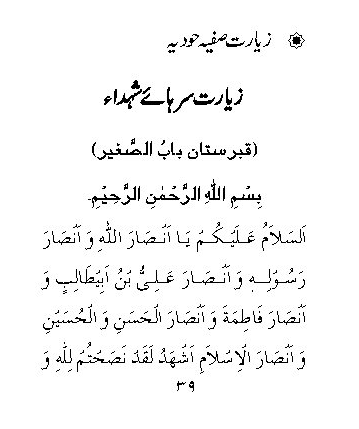 زیارت صفیہ حودیہ
زیارت سرہائے شہداء
(قبرستان بابُ الصَّغیر)
بِسْمِ اللهِ الرَّحْمٰنِ الرَّحِیْمِ۔
اَلسَّلاَمُ عَلَیْکُمْ یَا اَنْصَارَ اللهِ وَ اَنْصَارَ
رَسُوْلِهٖ وَ اَنْصَارَ عَلِیُّ بْنُ اَبِیْطَالِبٍ وَ
اَنْصَارَ فَاطِمَةَ وَ اَنْصَارَ الْحَسَنِ وَ الْحُسَیْنِ
وَ اَنْصَارَ الْاِسْلاَمِ اَشْهَدُ لَقَدْ نَصَحْتُمْ لِلّٰهِ وَ
۳۹